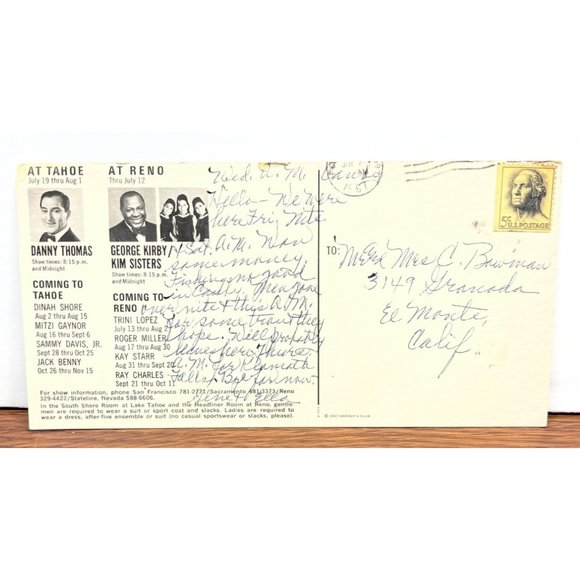 AT TAHOE
July 19 thru Aug 1
DANNY THOMAS
Show times: 8:15 p.m.
and Midnight
COMING TO
TAHOE
DINAH SHORE
Aug 2 thru Aug 15
MITZI GAYNOR
Aug 16 thru Sept 6
SAMMY DAVIS, JR.
Sept 28 thru Oct 25
JACK BENNY
Oct 26 thru Nov 15
AT RENO
Thru July 12
GEORGE KIRBY
KIM SISTERS
Show times: 8:15 p.m.
and Midnight
COMING TO
RENO
TRINI LOPEZ
July 13 thru Aug
ROGER MILLER
Aug 17 thru Aug 30
KAY STARR
Aug 31 thru Sept 20
RAY CHARLES
Sept 21 thru Oct 11
For show information, phone San Francisco 781-2771/Sacramento 481-3373/Reno
329-4422/Stateline, Nevada 588-6606.
In the South Shore Room at Lake Tahoe and the Headliner Room at Reno, gentle-
men are required to wear a suit or sport coat and slacks. Ladies are required to
wear a dress, after five ensemble or suit (no casual sportswear or slacks, please).
Wed. A.M.
Hello - We were
here Fri. Nite
+ Sat. A.M. Won
some money.
Fishing no good
in
over nite + this A.M.
for some trout they
hope. Will probably
leave here Thurs.
A.M. for Klamath
Falls. Bye for now.
Gene + Ella
TO:
Mr and Mrs C. Bowman
3149 Granada
El Monte,
Calif.
5¢ U.S. POSTAGE
HARRAH'S CLUB